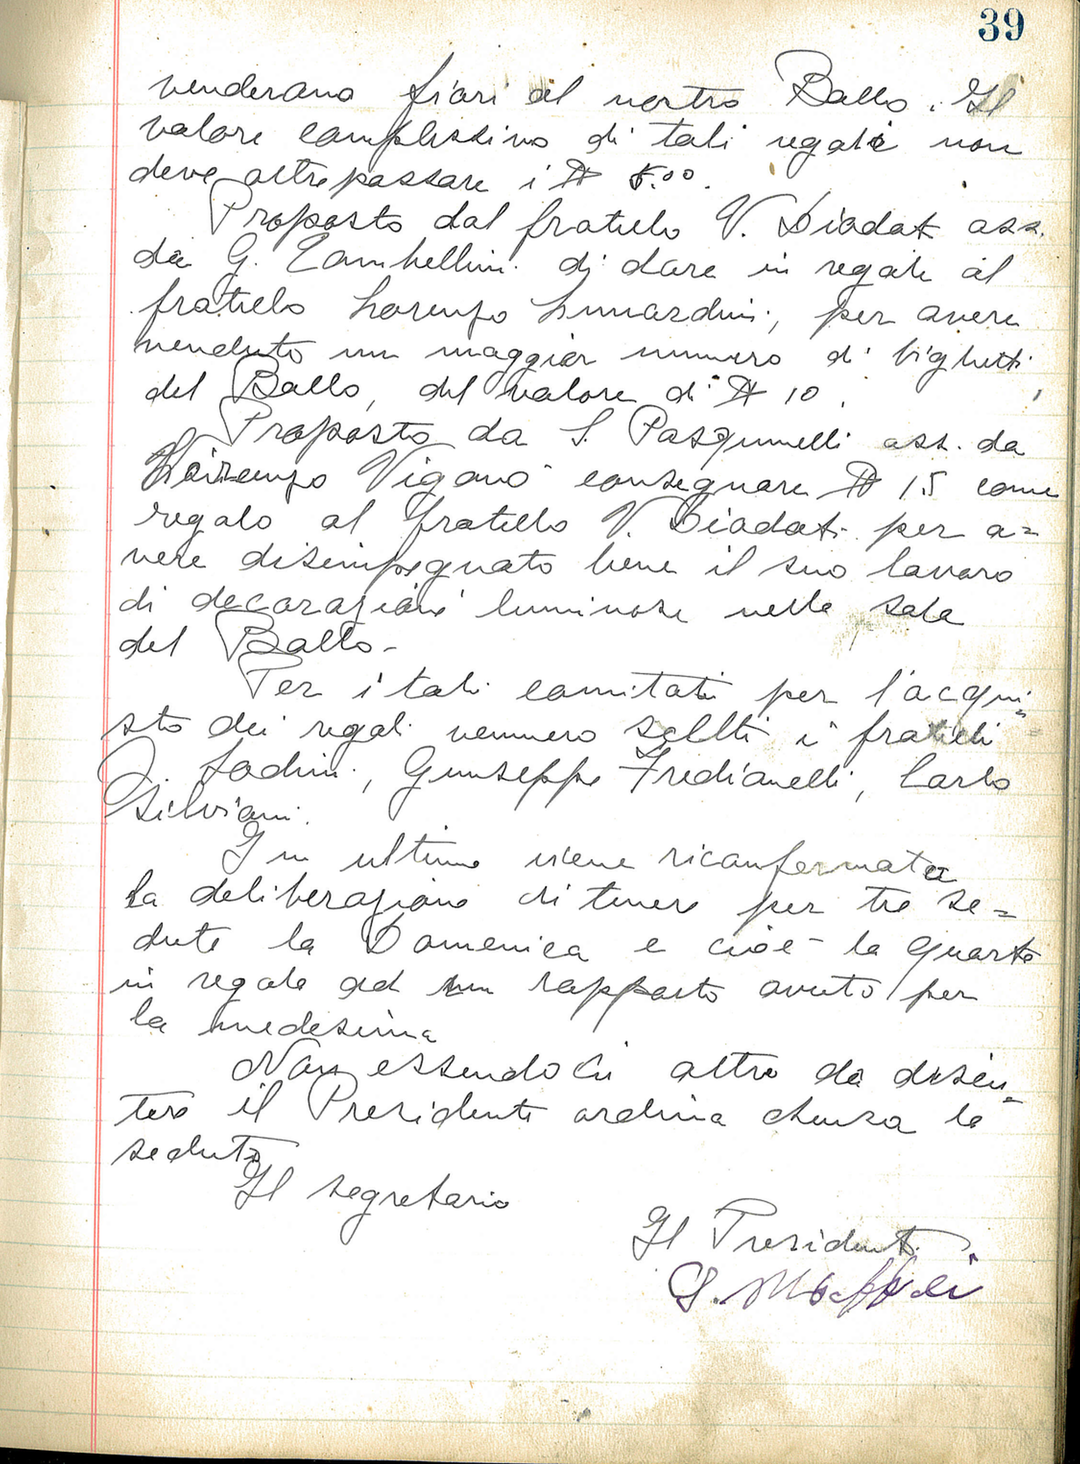 39
venderano fiori al nostro Ballo. Il
valore complessivo di tali regali non
deve oltrepassare i $ 5.00.
Proposto dal fratello V. Diodati ass.
da G. Zambellini di dare in regalo al
fratello Lorenzo Lunardini, per avere
venduto un maggior numero di bighetti
del Ballo, del valore di $ 10.
Proposto da S. Pasquinelli ass. da
Lorenzo Viganò consegnare $ 15 come
regalo al fratello V. Diodati per a=
vere disimpegnato bene il suo lavoro
di decorazioni luminose nella sala
del Ballo-
Per i tali comitati per l'acqui=
sto dei regali vennero scelti i fratelli
Lodini, Giuseppe Fredianelli, Carlo
Silviani.
In ultimo viene riconfermata
la deliberazione di tenere per tre se=
dute la Domenica e cioè la quarta
in regola ad un rapporto avuto per
la medesima
Non essendoci altro da discu=
tere il Presidente ordina chiusa la
seduta
Il segretario
Il Presidente
G. Maffei